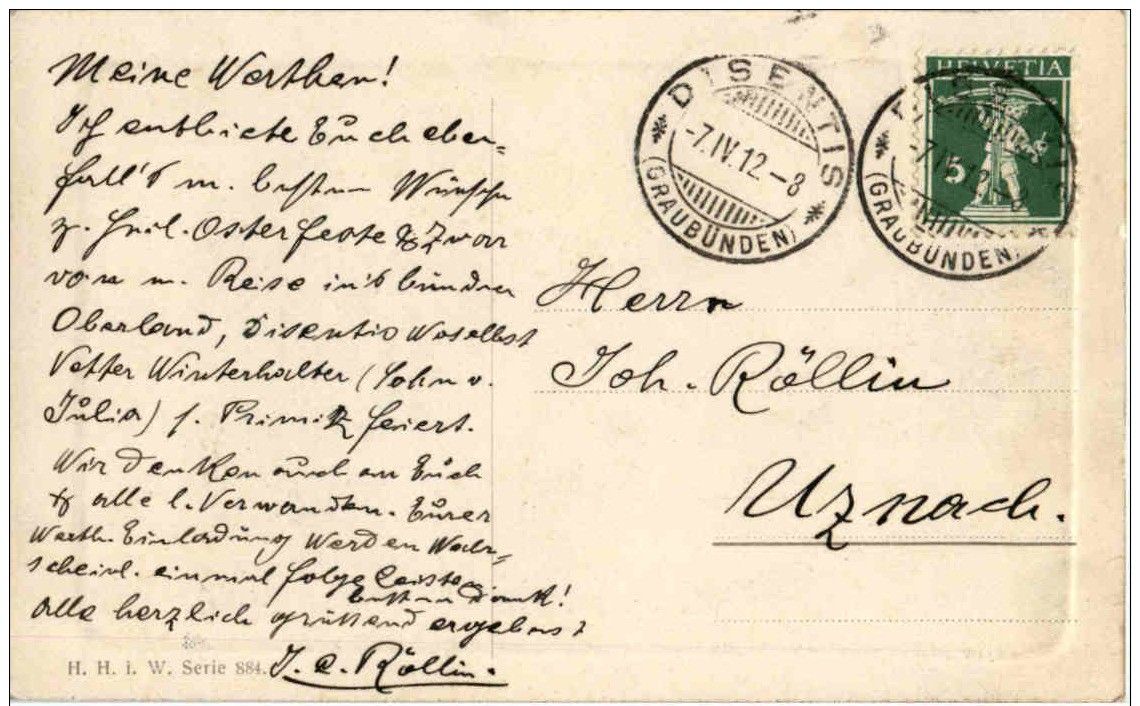 Meine Werthen!
Ich entbiete Euch eben=
fall's m. besten Wünsche
z. heil. Osterfeste & zwar
von m. Reise in's bündner
Oberland, Disentis woselbst
Vetter Winterhalter (Sohn v.
Julia) s. Primiz feiert.
Wir denken auch an Euch
& alle l. Verwandten. Eurer
Werth. Einladung werden wahr=
scheinl. einmal folge leisten,
besten Dank!
alle herzlich grüssend ergebenst
J. C. Röllin.
H. H. i. W. Serie 884.
DISENTIS
-7.IV.12-8
(GRAUBÜNDEN)
HELVETIA
5
DISENTIS
-7.IV.12-8
(GRAUBÜNDEN)
Herrn
Joh. Röllin
Uznach.